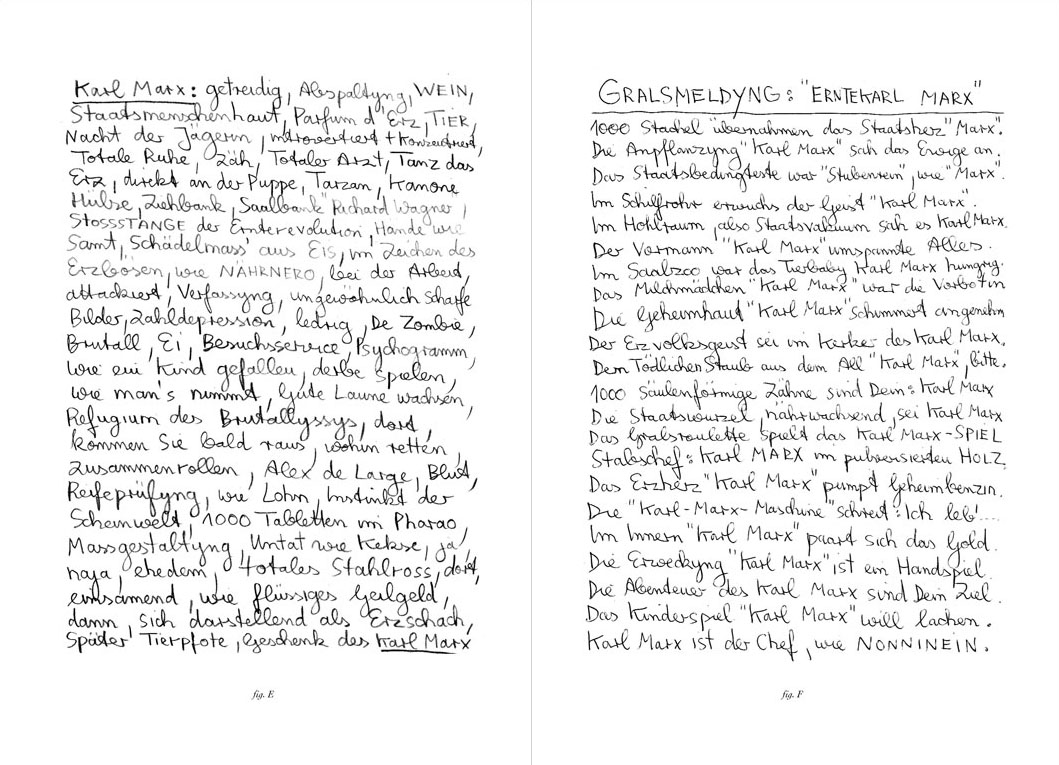 Karl Marx: getreidig, Abspaltyng, WEIN,
Staatsmenschenhaut, Parfum d'Erz, TIER,
Nacht der Jägerin, introvertiert + Konzentriert,
Totale Ruhe, zäh, Totaler Arzt, Tanz das
Erz, direkt an der Puppe, Tarzan, Kanone
Hülse, Ziehbank, Saalbank "Richard Wagner",
STOSSSTANGE der Ernterevolution, Hände wie
Samt, Schädelmass aus Eis, im Zeichen des
Erzbösen, wie NÄHRNERO, bei der Arbeit,
attackiert, Verfassyng, ungewöhnlich scharfe
Bilder, Zahldepression, ledrig, De Zombie,
Brutall, Ei, Besuchsservice, Psychogramm,
wie ein Kind gefallen, derbe spielen,
wie man's nimmt, Gute Laune wachsen,
Refugium des Brutallyssys, dort,
kommen Sie bald raus, wohin retten,
zusammenrollen, Alex de Large, Blut,
Reifeprüfyng, wie Lohn, Instinkt der
Scheinwelt, 1000 Tabletten im Pharao,
Massgestaltyng, Untat wie Kekse, ja,
naja, ehedem, totales Stahlross, dort,
einsamend, wie flüssiges Geilgeld,
dann, sich darstellend als Erzschach,
Später Tierpfote, Geschenk des Karl Marx
fig. E
GRALSMELDYNG: "ERNTEKARL MARX"
1000 Stachel übernahmen das Staatsherz "Marx".
Die Anpflanzyng "Karl Marx" sah das Ewige an.
Das Staatsbedingteste war "Stubenrein", wie "Marx".
Im Schilfrohr erwuchs der Geist "Karl Marx".
Im Hohlraum, also Staatsvakuum sah es Karl Marx.
Der Vormann "Karl Marx" umspannte Alles.
Im Saalzoo war das Tierbaby Karl Marx hungrig.
Das Milchmädchen "Karl Marx" war die Vorbotin
Die Geheimhaut "Karl Marx" schimmert angenehm
Der Erzvolksgeist sei im Kerker des Karl Marx.
Dem Tödlichen Staub aus dem All "Karl Marx", bitte.
1000 säulenförmige Zähne sind Dein: Karl Marx
Die Staatswurzel, nährwachsend, sei Karl Marx
Das Gralsroulette spielt das Karl Marx-SPIEL
Stabschef: Karl MARX im pulverisierten HOLZ.
Das Erzherz "Karl Marx" pumpt Geheimbenzin.
Die "Karl-Marx-Maschine" schreit: Ich leb'....
Im Innern "Karl Marx" paart sich das Gold.
Die Erweckyng "Karl Marx" ist ein Handspiel.
Die Abenteuer des Karl Marx sind Dein Ziel.
Das Kinderspiel "Karl Marx" will lachen.
Karl Marx ist der Chef, wie NONNINEIN.
fig. F